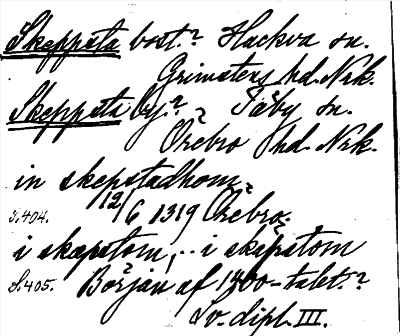 Skeppsta bost.? Hackva sn.
Grimstens hd. Nrk.
Skeppsta by.? Täby sn.
Örebro hd. Nrk.
in skepstadhom?
12/6 1319 Örebro.
S.404.
i skæpstom, .. i skepstom
S.405. Början af 1300-talet.?
Sv. dipl. III.